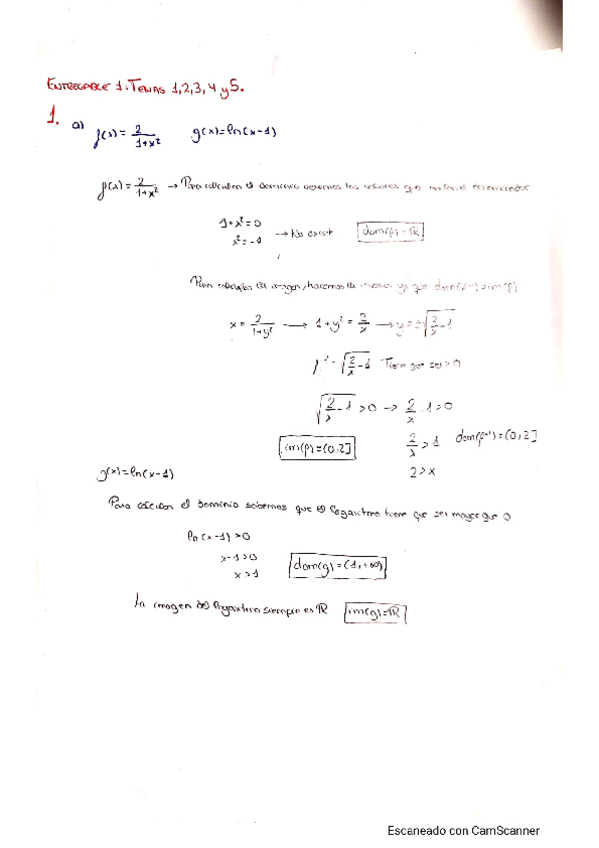 ENTREGABLE 1. TEMAS 1,2,3,4 y 5.
1. a) f(x) = 2/(1+x²) g(x) = ln(x-1)
f(x) = 2/(1+x²) → Para calcular el dominio veremos los valores que anulan el denominador
1+x² = 0
x² = -1 → No exist dom(f) = ℝ
Para calcular la imagen, hacemos la inversa ya que dom(f⁻¹) = im(f)
x = 2/(1+y²) → 1+y² = 2/x → y = ±√(2/x - 1)
f⁻¹ = √(2/x - 1) Tiene que ser > 0
√(2/x - 1) > 0 → 2/x - 1 > 0
im(f) = (0,2] 2/x > 1 dom(f⁻¹) = (0,2]
2 > x
g(x) = ln(x-1)
Para calcular el dominio sabemos que el logaritmo tiene que ser mayor que 0
ln(x-1) > 0
x-1 > 0
x > 1 dom(g) = (1, +∞)
La imagen del logaritmo siempre es ℝ im(g) = ℝ
Escaneado con CamScanner